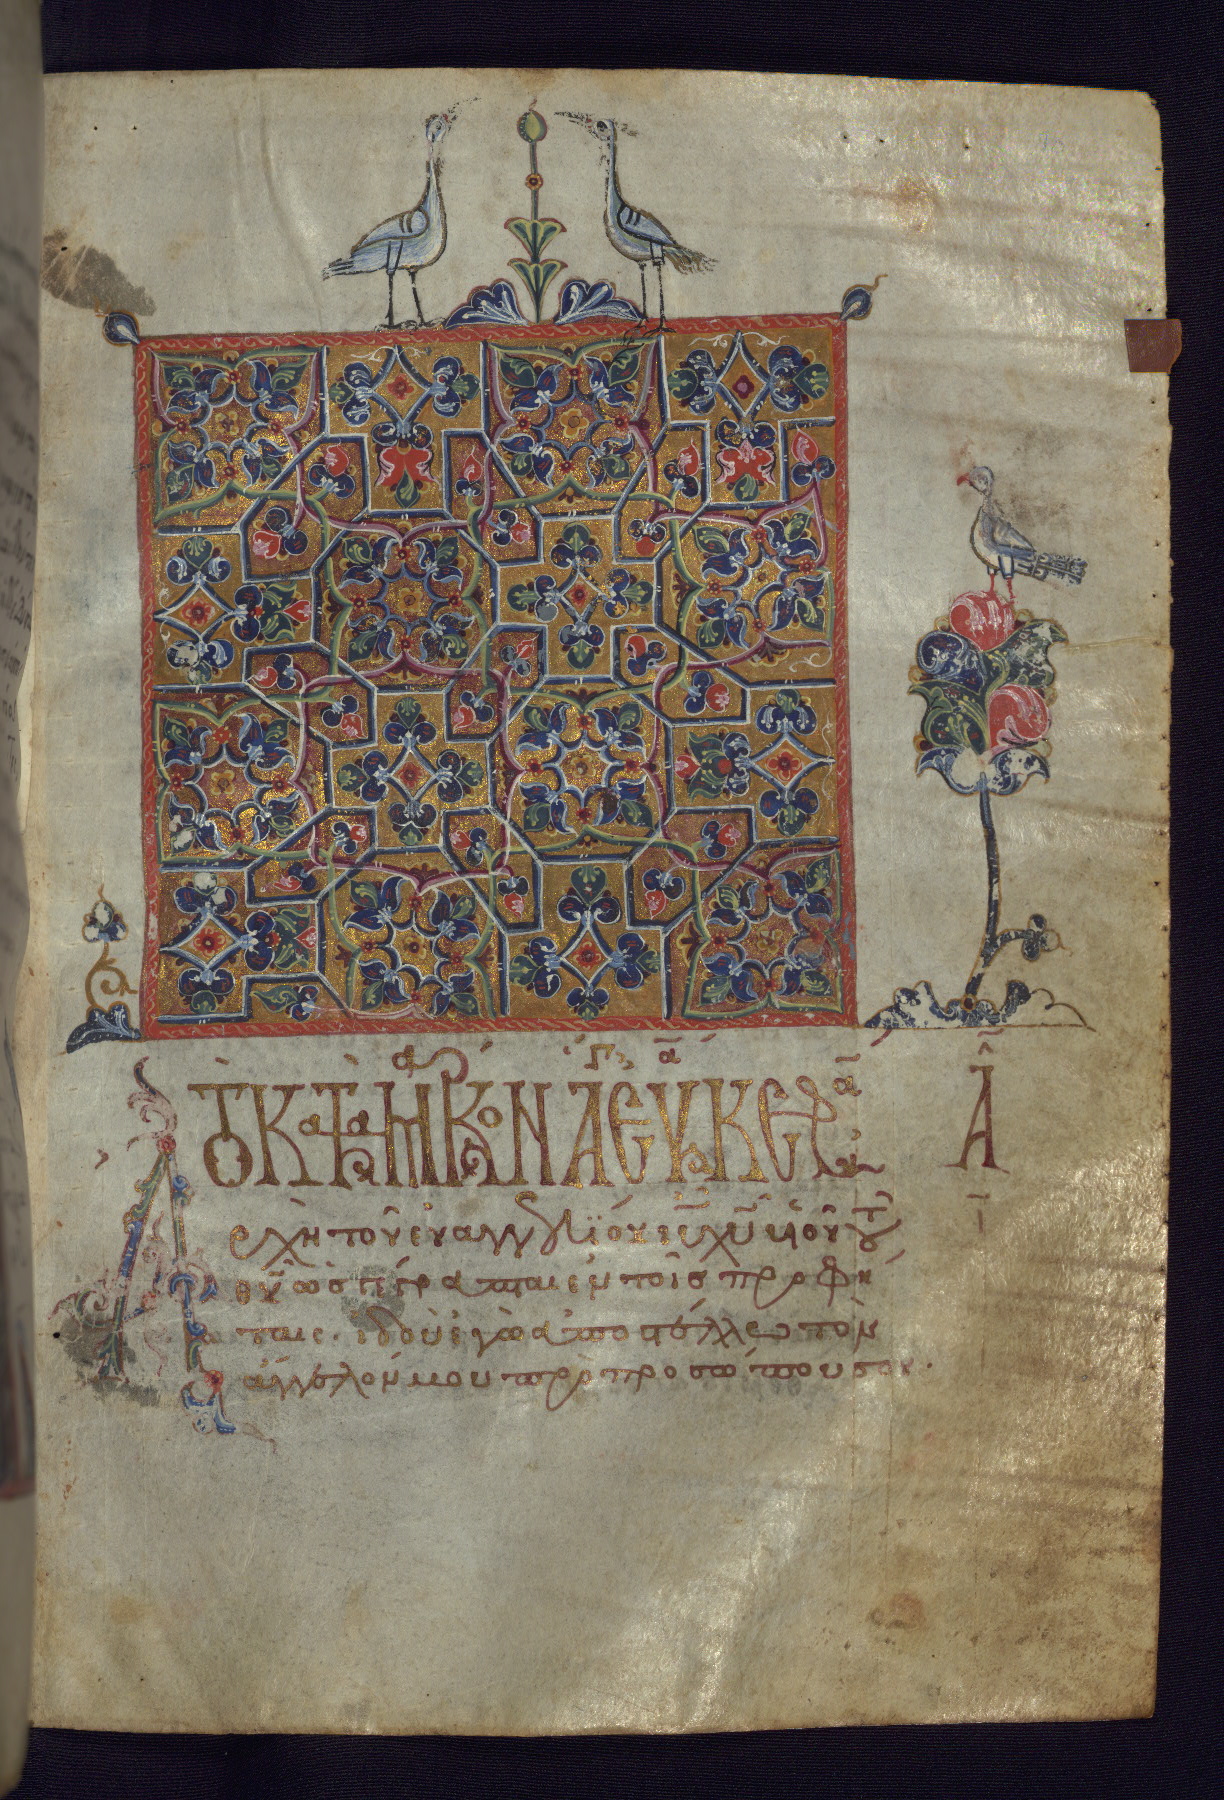 ΤΟ ΚΑΤΑ ΜΑΡΚΟΝ ΑΓΕΥ ΚΕΦ Α
Α
ρχὴ τοῦ εὐαγγελίου ιυ χυ υἱοῦ τοῦ
θυ ὡς γέγραπται ἐν τοῖς προφή
ταις. ἰδοὺ ἐγὼ ἀποστέλλω τὸν
ἄγγελόν μου πρὸ προσώπου σου.